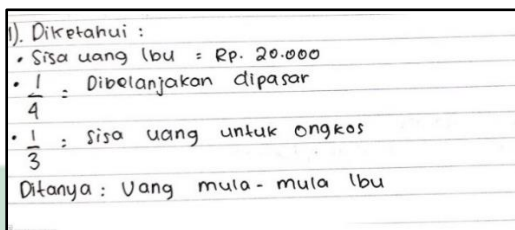 1). Diketahui :
• Sisa uang Ibu : Rp. 20.000
• 1/4 : Dibelanjakan dipasar
• 1/3 : Sisa uang untuk ongkos
Ditanya : Uang mula-mula Ibu